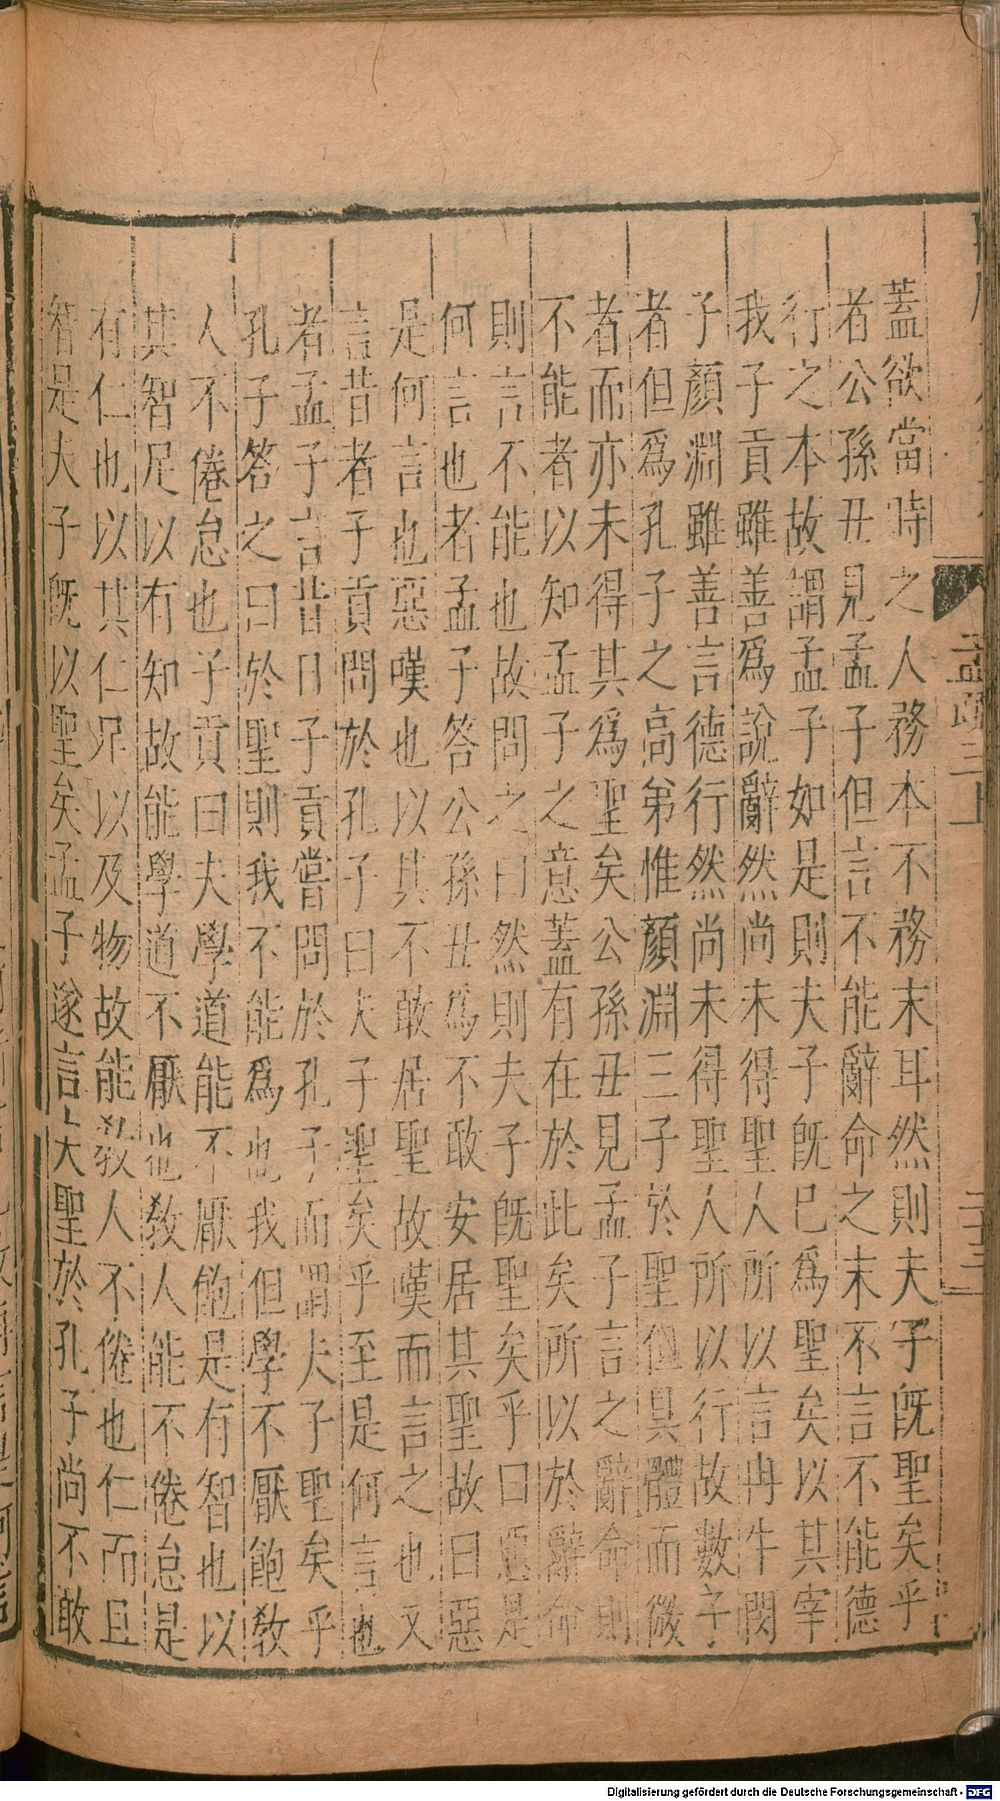 蓋欲當時之人務本不務末耳然則夫子旣聖矣乎
者公孫丑見孟子但言不能辭命之末不言不能德
行之本故謂孟子如是則夫子旣巳爲聖矣以其宰
我子貢雖善爲說辭然尚未得聖人所以言冉牛閔
子顏淵雖善言德行然尚未得聖人所以行故數子
者但爲孔子之高弟惟顏淵三子於聖但具體而微
者而亦未得其爲聖矣公孫丑見孟子言之辭命則
不能者以知孟子之意蓋有在於此矣所以於辭命
則言不能也故問之曰然則夫子旣聖矣乎曰惡是
何言也者孟子答公孫丑爲不敢安居其聖故曰惡
是何言也惡嘆也以其不敢居聖故嘆而言之也又
言昔者子貢問於孔子曰夫子聖矣乎至是何言也
者孟子言昔日子貢嘗問於孔子而謂夫子聖矣乎
孔子答之曰於聖則我不能爲也我但學不厭飽敎
人不倦怠也子貢曰夫學道能不厭飽是有智也以
其智足以有知故能學道不厭也敎人能不倦怠是
有仁也以其仁足以及物故能敎人不倦也仁而且
智是夫子旣以聖矣孟子遂言大聖於孔子尚不敢
孟疏三上
二十三
Digitalisierung gefördert durch die Deutsche Forschungsgemeinschaft - DFG